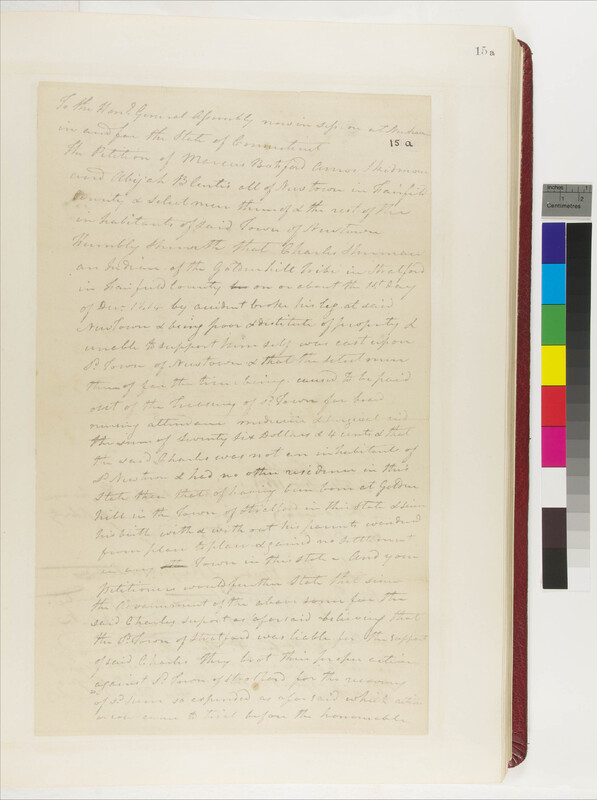 15a
To the Honl. General Assembly now in session at
15 a
in and for the State of Connecticut
The Petition of Marcus Botsford Amos Skidmore
and Abijah B Curtis all of Newtown in Fairfield
County & Select men thereof & the rest of the
inhabitants of said Town of Newtown
Humbly Sheweth that Charles Sherman
an Indian of the Goldenhill tribe in Stratford
in Fairfield County on or about the day
of Decr. by accident broke his leg at said
Newtown & being poor & destitute of property &
unable to support himself was cast upon
Sd. Town of Newtown & that the select men
thereof for the time being caused to be paid
out of the Treasury of Sd. Town for his
nursing attendance medicine & surgical aid
the sum of Seventy Six Dollars & 4 cents & that
the said Charles was not an inhabitant of
Sd. Newtown & had no other residence in this
State than that of having been born at Golden
Hill in the Town of Stratford in this State & since
his birth with & with out his parents wandered
from place to place & gained no settlement
in any Town in this State And your
Petitioners would further State that since
the of the above sum for the
said Charles suport as aforsaid believing that
the Sd. Town of Stratford was liable for the support
of said Charles they brot their proper action
against Sd. Town of Stratford for the recovery
of Sd. sum so expended as aforsaid which
came to trial before the honourable
inches
1
2
Centimetres